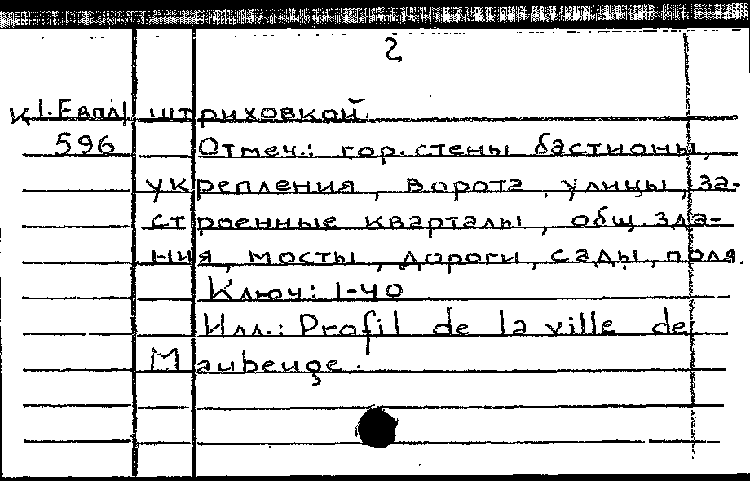 2
К 1. Евпл/ штриховкой.
596 Отмеч.: гор. стены бастионы,
укрепления, ворота, улицы, за-
строенные кварталы, общ. зда-
ния, мосты, дороги, сады, поля.
Ключ: 1-40
Илл.: Profil de la ville de
Maubeuge.